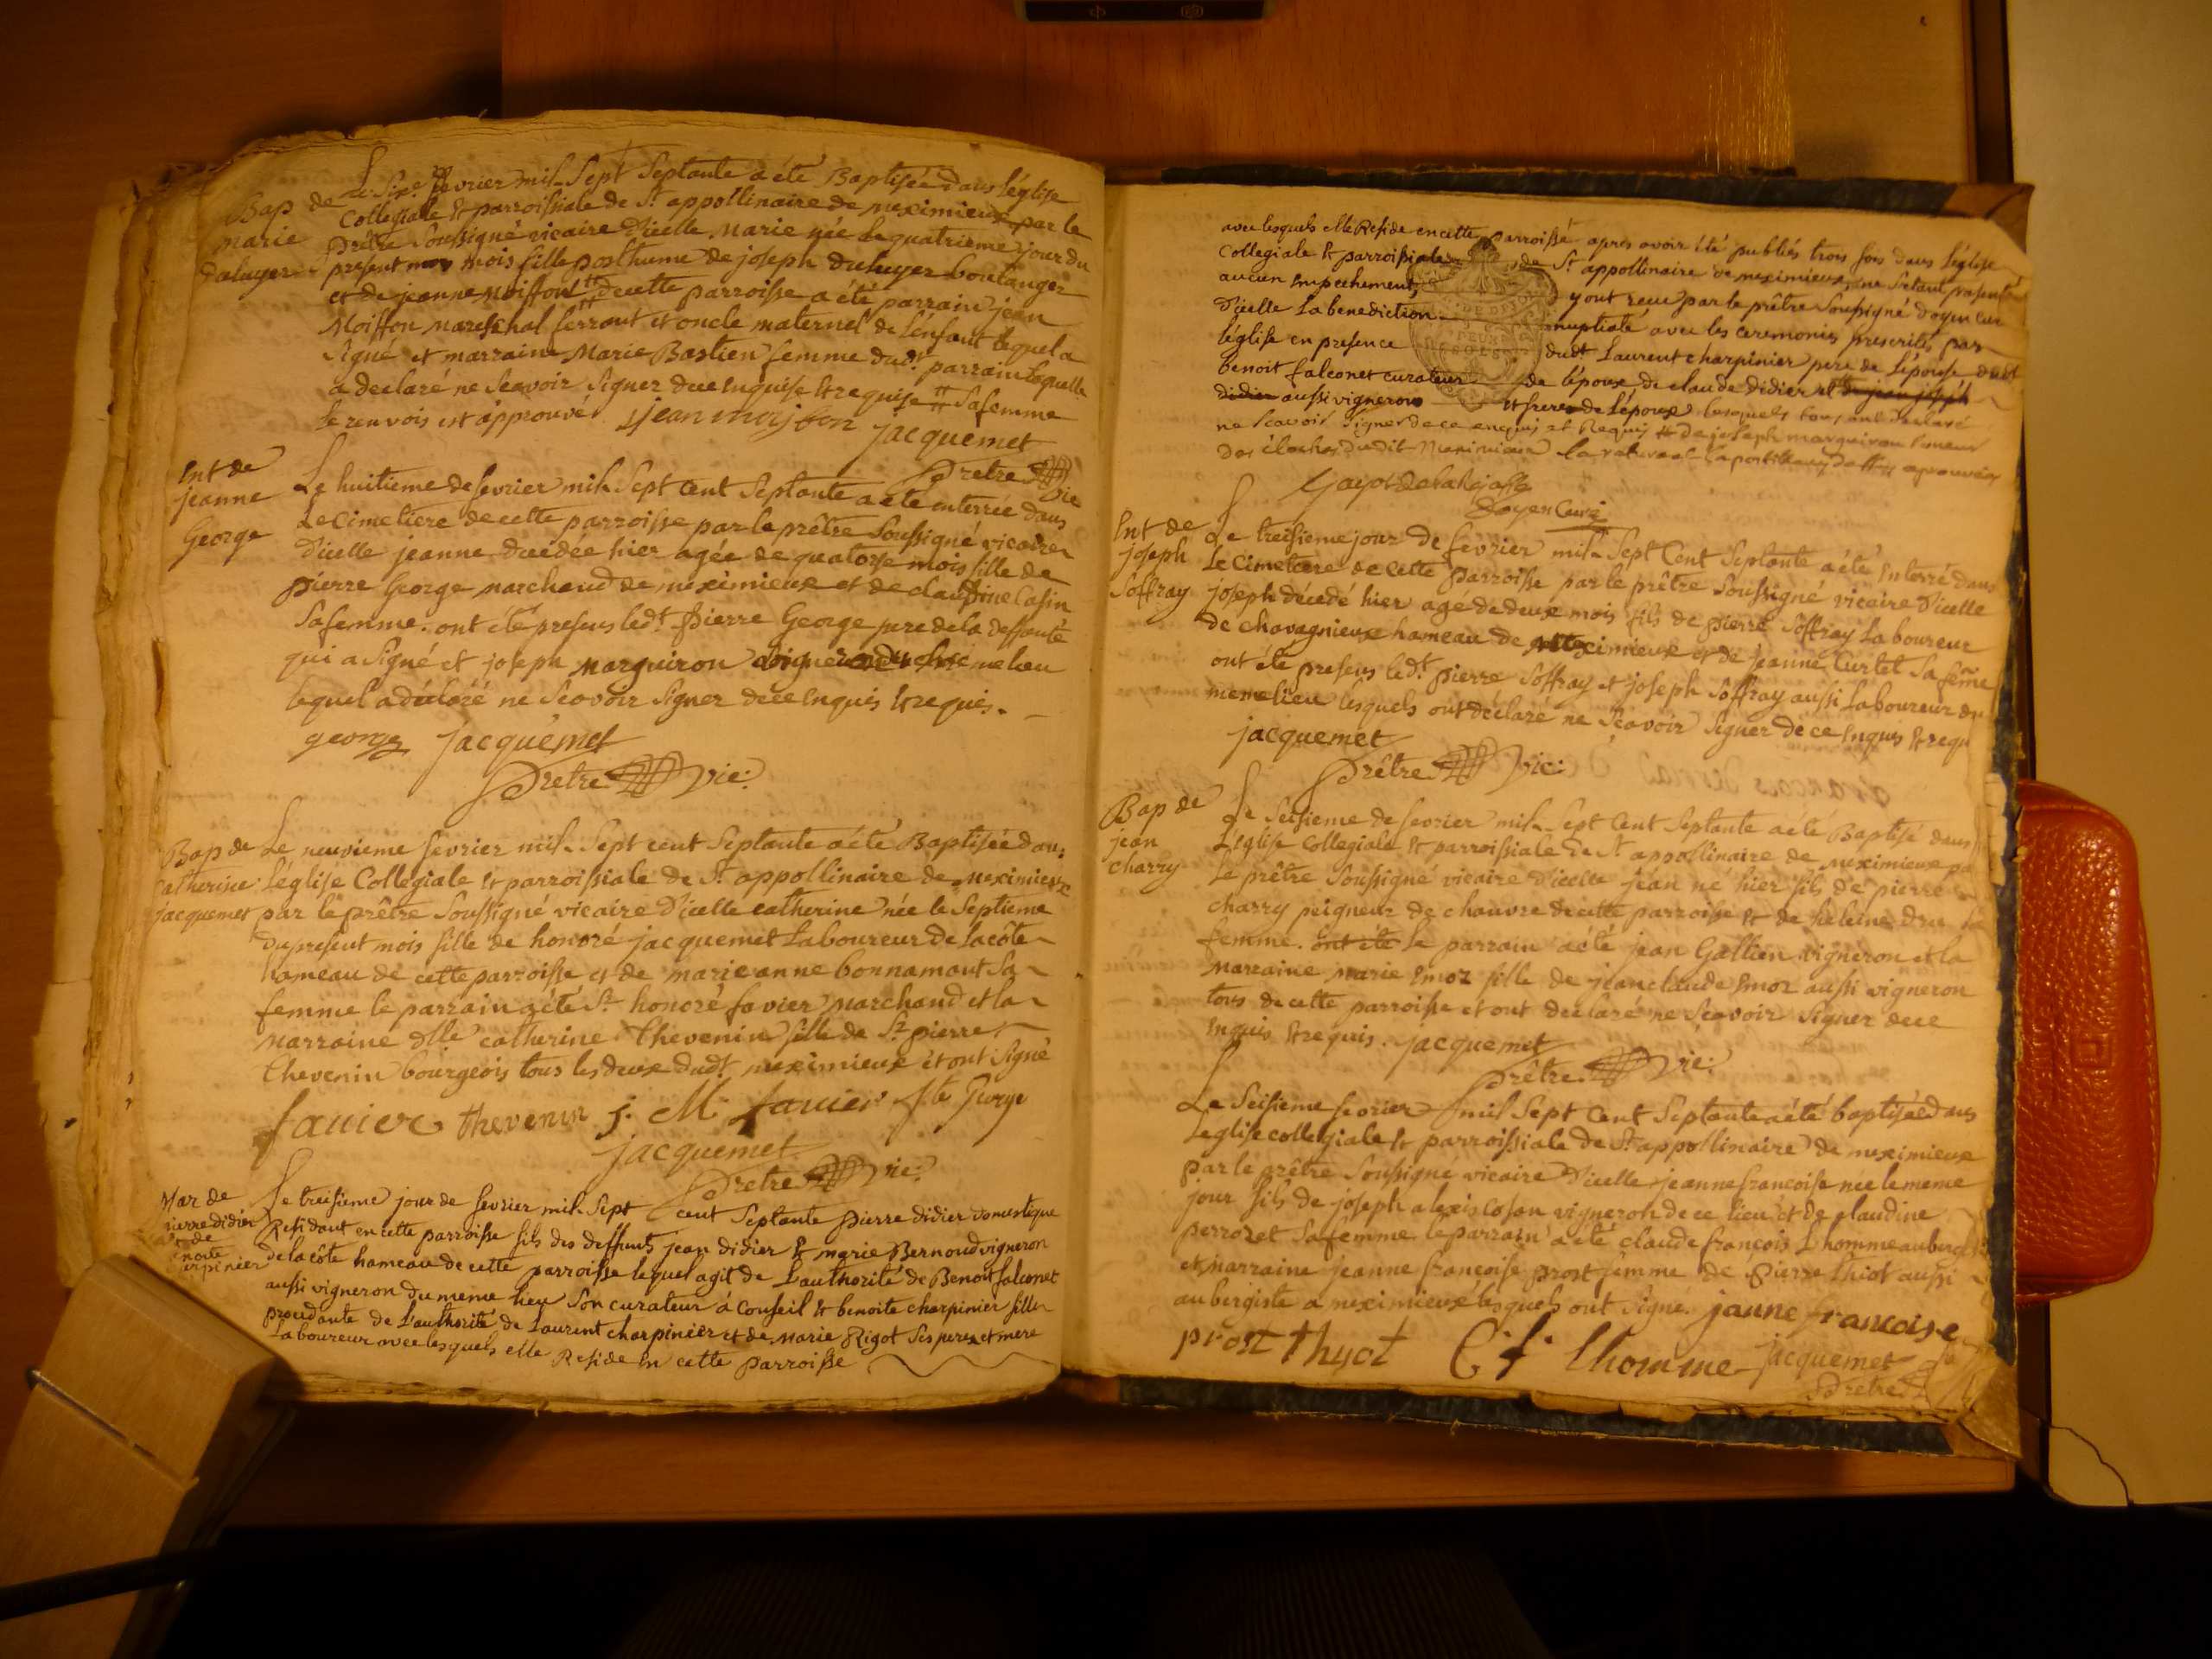 Bap de
marie
daluyer
Le sixe. fevrier mil Sept Septante a été Baptisée dans l'église
Collegiale & parroissiale de St appollinaire de meximieux par le
prêtre Soussigné vicaire d'icelle marie née le quatrieme jour du
present mois fille posthume de joseph daluyer boulanger
et de jeanne Moiffon # de cette parroisse a été parrain jean
Moiffon mareschal ferrant et oncle maternel de l'enfant lequel a
signé et marraine Marie Bastien femme dudt parrain laquelle
a declaré ne Scavoir signer de ce enquise & requise # Sa femme
le renvois est approuvé
jacquemet
Pretre vic
Int de
jeanne
George
Le huitieme de fevrier mil Sept Cent Septante a été enterrée dans
Le Cimetiere de cette parroisse par le prêtre Soussigné vicaire
d'icelle jeanne decedée hier agée de quatorse mois fille de
pierre George marchand de meximieux et de claudine Casin
Sa femme. ont été presens ledt pierre George pere de la deffunte
qui a Signé et joseph marguiron du meme lieu
lequel a declaré ne Scavoir Signer de ce enquis & requis.
george jacquemet
Pretre vic:
Bap de
Catherine
jacquemet
Le neuvieme fevrier mil Sept cent Septante a été Baptisée dans
l'église Collegiale & parroissiale de St appollinaire de meximieux
par le prêtre Soussigné vicaire d'icelle catherine née le Septieme
du present mois fille de honoré jacquemet Laboureur de la côte
hameau de cette parroisse et de marie anne bonnamant Sa
femme le parrain a été Sr honoré favier marchand et la
marraine dlle catherine Thevenin fille de Sr pierre
Thevenin bourgeois tous les deux dudt meximieux et ont Signé
favier thevenin j. M. favier George
jacquemet
Pretre vic:
Mar de
pierre didier
et de
Le treisieme jour de fevrier mil Sept cent Septante pierre didier domestique
Residant en cette parroisse fils des deffunts jean didier & marie Bernoud vigneron
de la côte hameau de cette parroisse lequel agit de L'authorité de Benoit falconet
aussi vigneron du meme lieu Son curateur à Conseil & benoite charpinier fille
procedante de L'authorité de Laurent charpinier et de marie Rigot Ses pere et mere
Laboureur avec lesquels elle Reside en cette parroisse
avec lesquels elle Reside en cette parroisse apres avoir été publiés trois fois dans l'église
Collegiale & parroissiale de St appollinaire de meximieux, ne s'etant presenté
aucun empechement, y ont reçu par le prêtre Soussigné doyen curé
d'icelle La benediction nuptiale avec les ceremonies prescrites par
l'église en presence dudt Laurent charpinier pere de l'épouse dudt
benoit falconet curateur de l'époux de claude didier et de jean joseph
didier aussi vignerons et freres de l'époux lesquels tous ont declaré
ne Scavoir Signer de ce enquis et Requis # de joseph marguiron Sonneur
des cloches dudit Meximieux
Doyen Curé
Int de
joseph
Soffray
Le treisieme jour de fevrier mil Sept Cent Septante a été Enterré dans
Le Cimetiere de Cette Parroisse par le prêtre Soussigné vicaire d'icelle
joseph décedé hier agé de deux mois fils de pierre Soffray Laboureur
de chavagnieux hameau de meximieux et de jeanne Curtet Sa feme
ont été presens ledt pierre Soffray et joseph Soffray aussi Laboureur du
meme lieu lesquels ont declaré ne Scavoir Signer de ce enquis & requ
jacquemet
Prêtre vic:
Bap de
jean
charry
Le Seisieme de fevrier mil Sept Cent Septante a été Baptisé dans
l'église Collegiale & parroissiale de St appollinaire de meximieux pa
le prêtre Soussigné vicaire d'icelle jean né hier fils de pierre
charry peigneur de chanvre de cette parroisse & de heleine dru sa
femme. ont été le parrain a été jean Gallien vigneron et la
marraine marie Emoz fille de jean claude Emoz aussi vigneron
tous de cette parroisse et ont declaré ne Scavoir Signer de ce
enquis & requis. jacquemet
Prêtre vic:
Le Seisieme fevrier mil Sept Cent Septante a été baptisée dans
L'eglise collegiale & parroissiale de St appollinaire de meximieux
par le prêtre Soussigné vicaire d'icelle jeanne francoise née le meme
jour fils de joseph alexis Coson vigneron de ce lieu et de claudine
perrozet Sa femme le parrain a été claude françois L'homme aubergiste
et marraine jeanne francoise prost femme de pierre Thiot aussi
aubergiste a meximieux lesquels ont signé. jeanne francoise
prost thyot C. f. lhomme jacquemet
Pretre